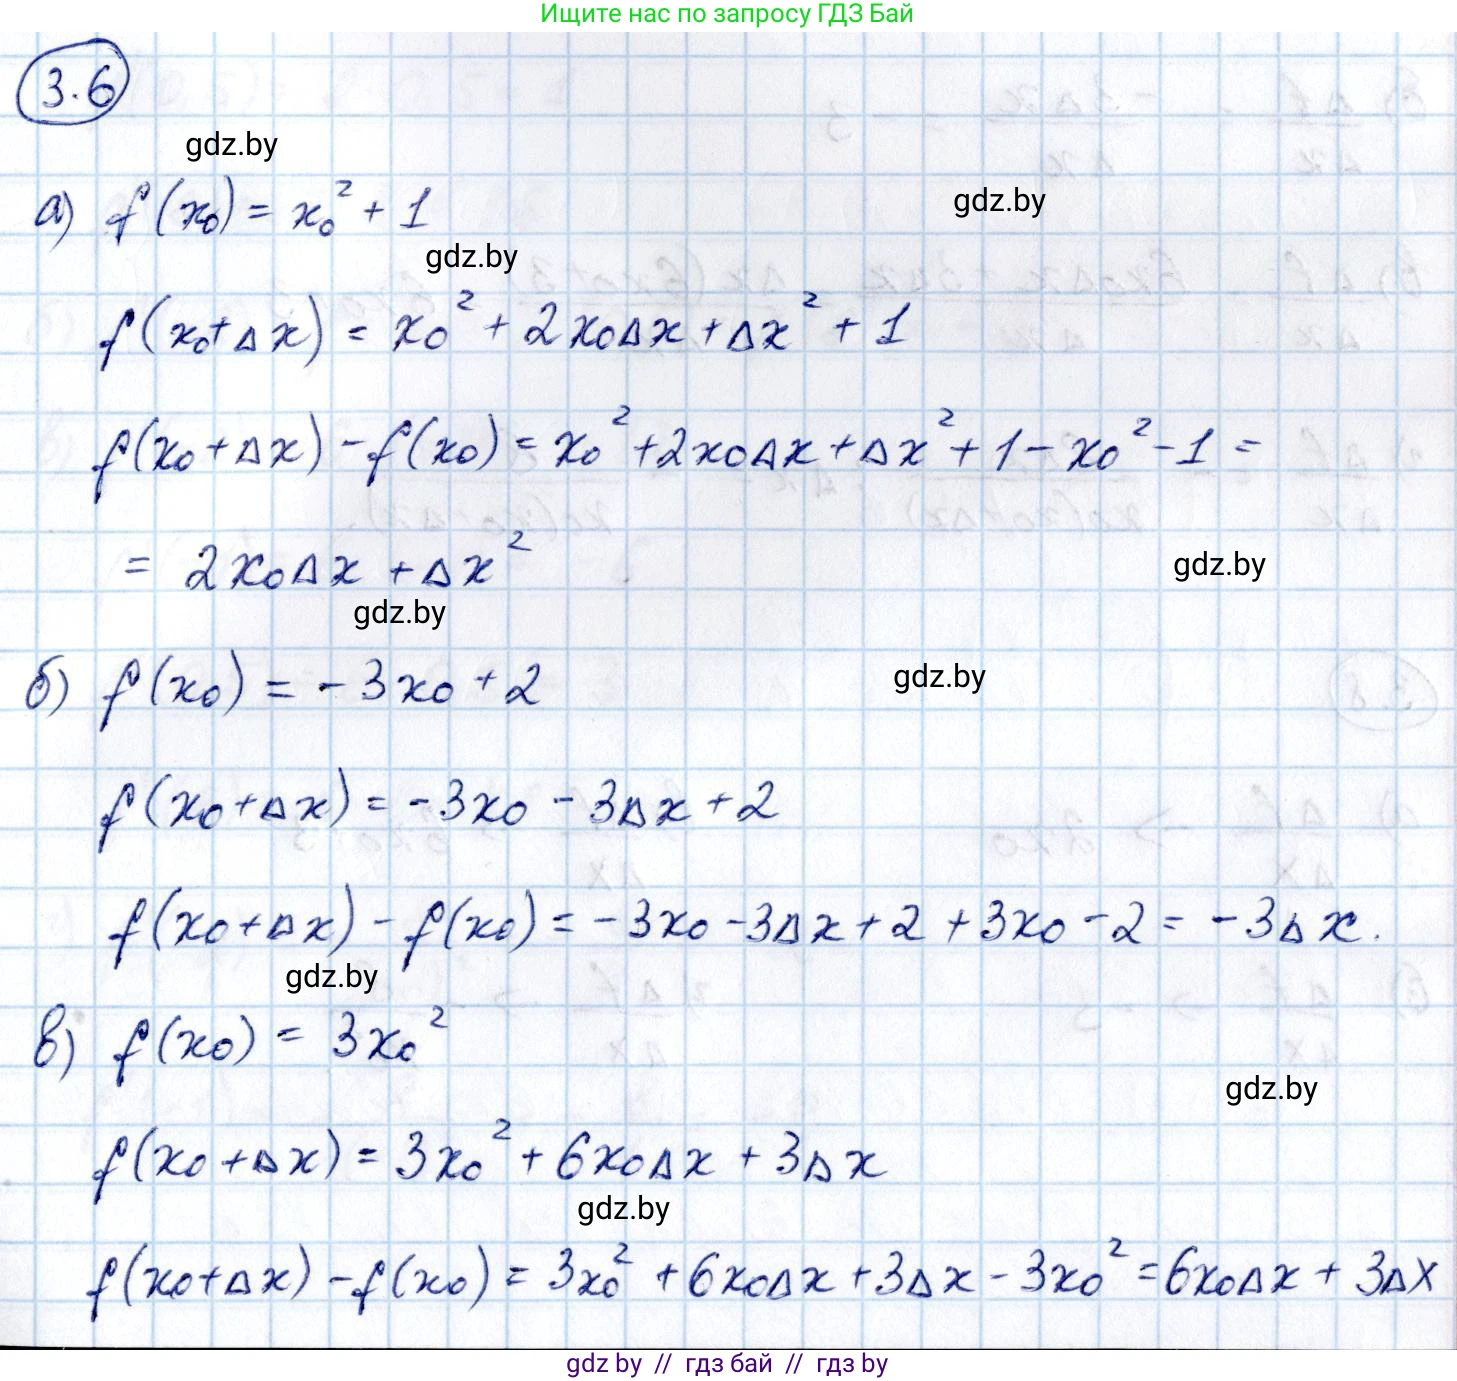 Ищите нас по запросу ГДЗ Бай
3.6
gdz.by
а) f(x₀) = x₀² + 1
gdz.by
gdz.by
f(x₀+Δx) = x₀² + 2x₀Δx + Δx² + 1
f(x₀+Δx) - f(x₀) = x₀² + 2x₀Δx + Δx² + 1 - x₀² - 1 =
= 2x₀Δx + Δx²
gdz.by
gdz.by
б) f(x₀) = -3x₀ + 2
gdz.by
f(x₀+Δx) = -3x₀ - 3Δx + 2
f(x₀+Δx) - f(x₀) = -3x₀ - 3Δx + 2 + 3x₀ - 2 = -3Δx.
gdz.by
в) f(x₀) = 3x₀²
gdz.by
f(x₀+Δx) = 3x₀² + 6x₀Δx + 3Δx
gdz.by
f(x₀+Δx) - f(x₀) = 3x₀² + 6x₀Δx + 3Δx - 3x₀² = 6x₀Δx + 3Δx
gdz by // гдз бай // гдз by